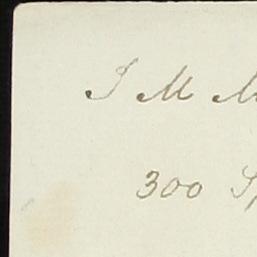 J M M
300 Sp